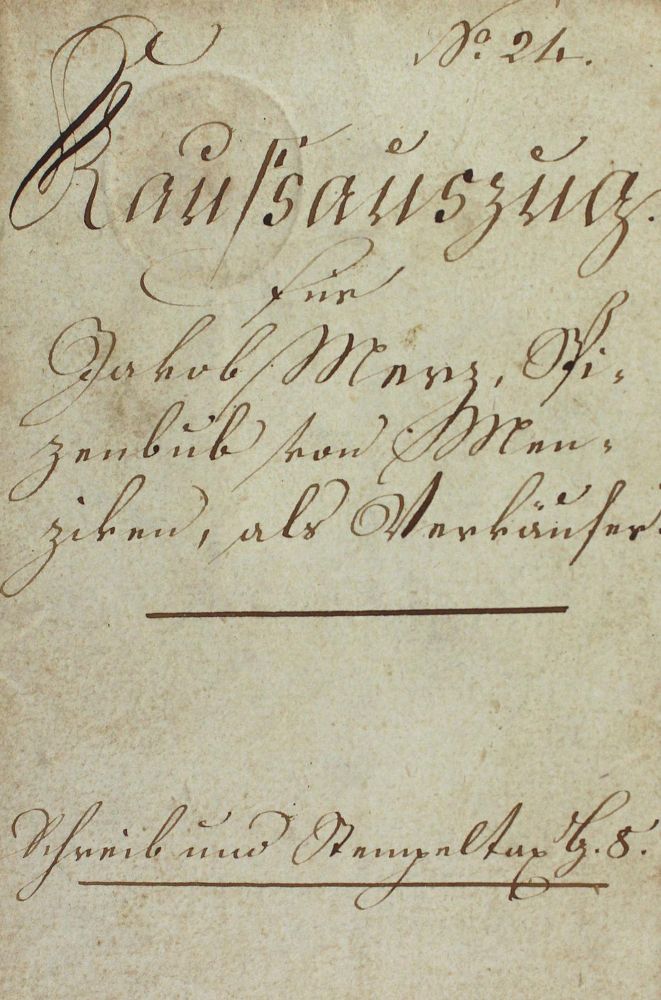 No. 24.
Kaufsauszug.
für
Jakob Merz, Spi-
zenbub von Men-
ziken, als Verkäufer.
Schreib und Stempeltax Bz. 8.